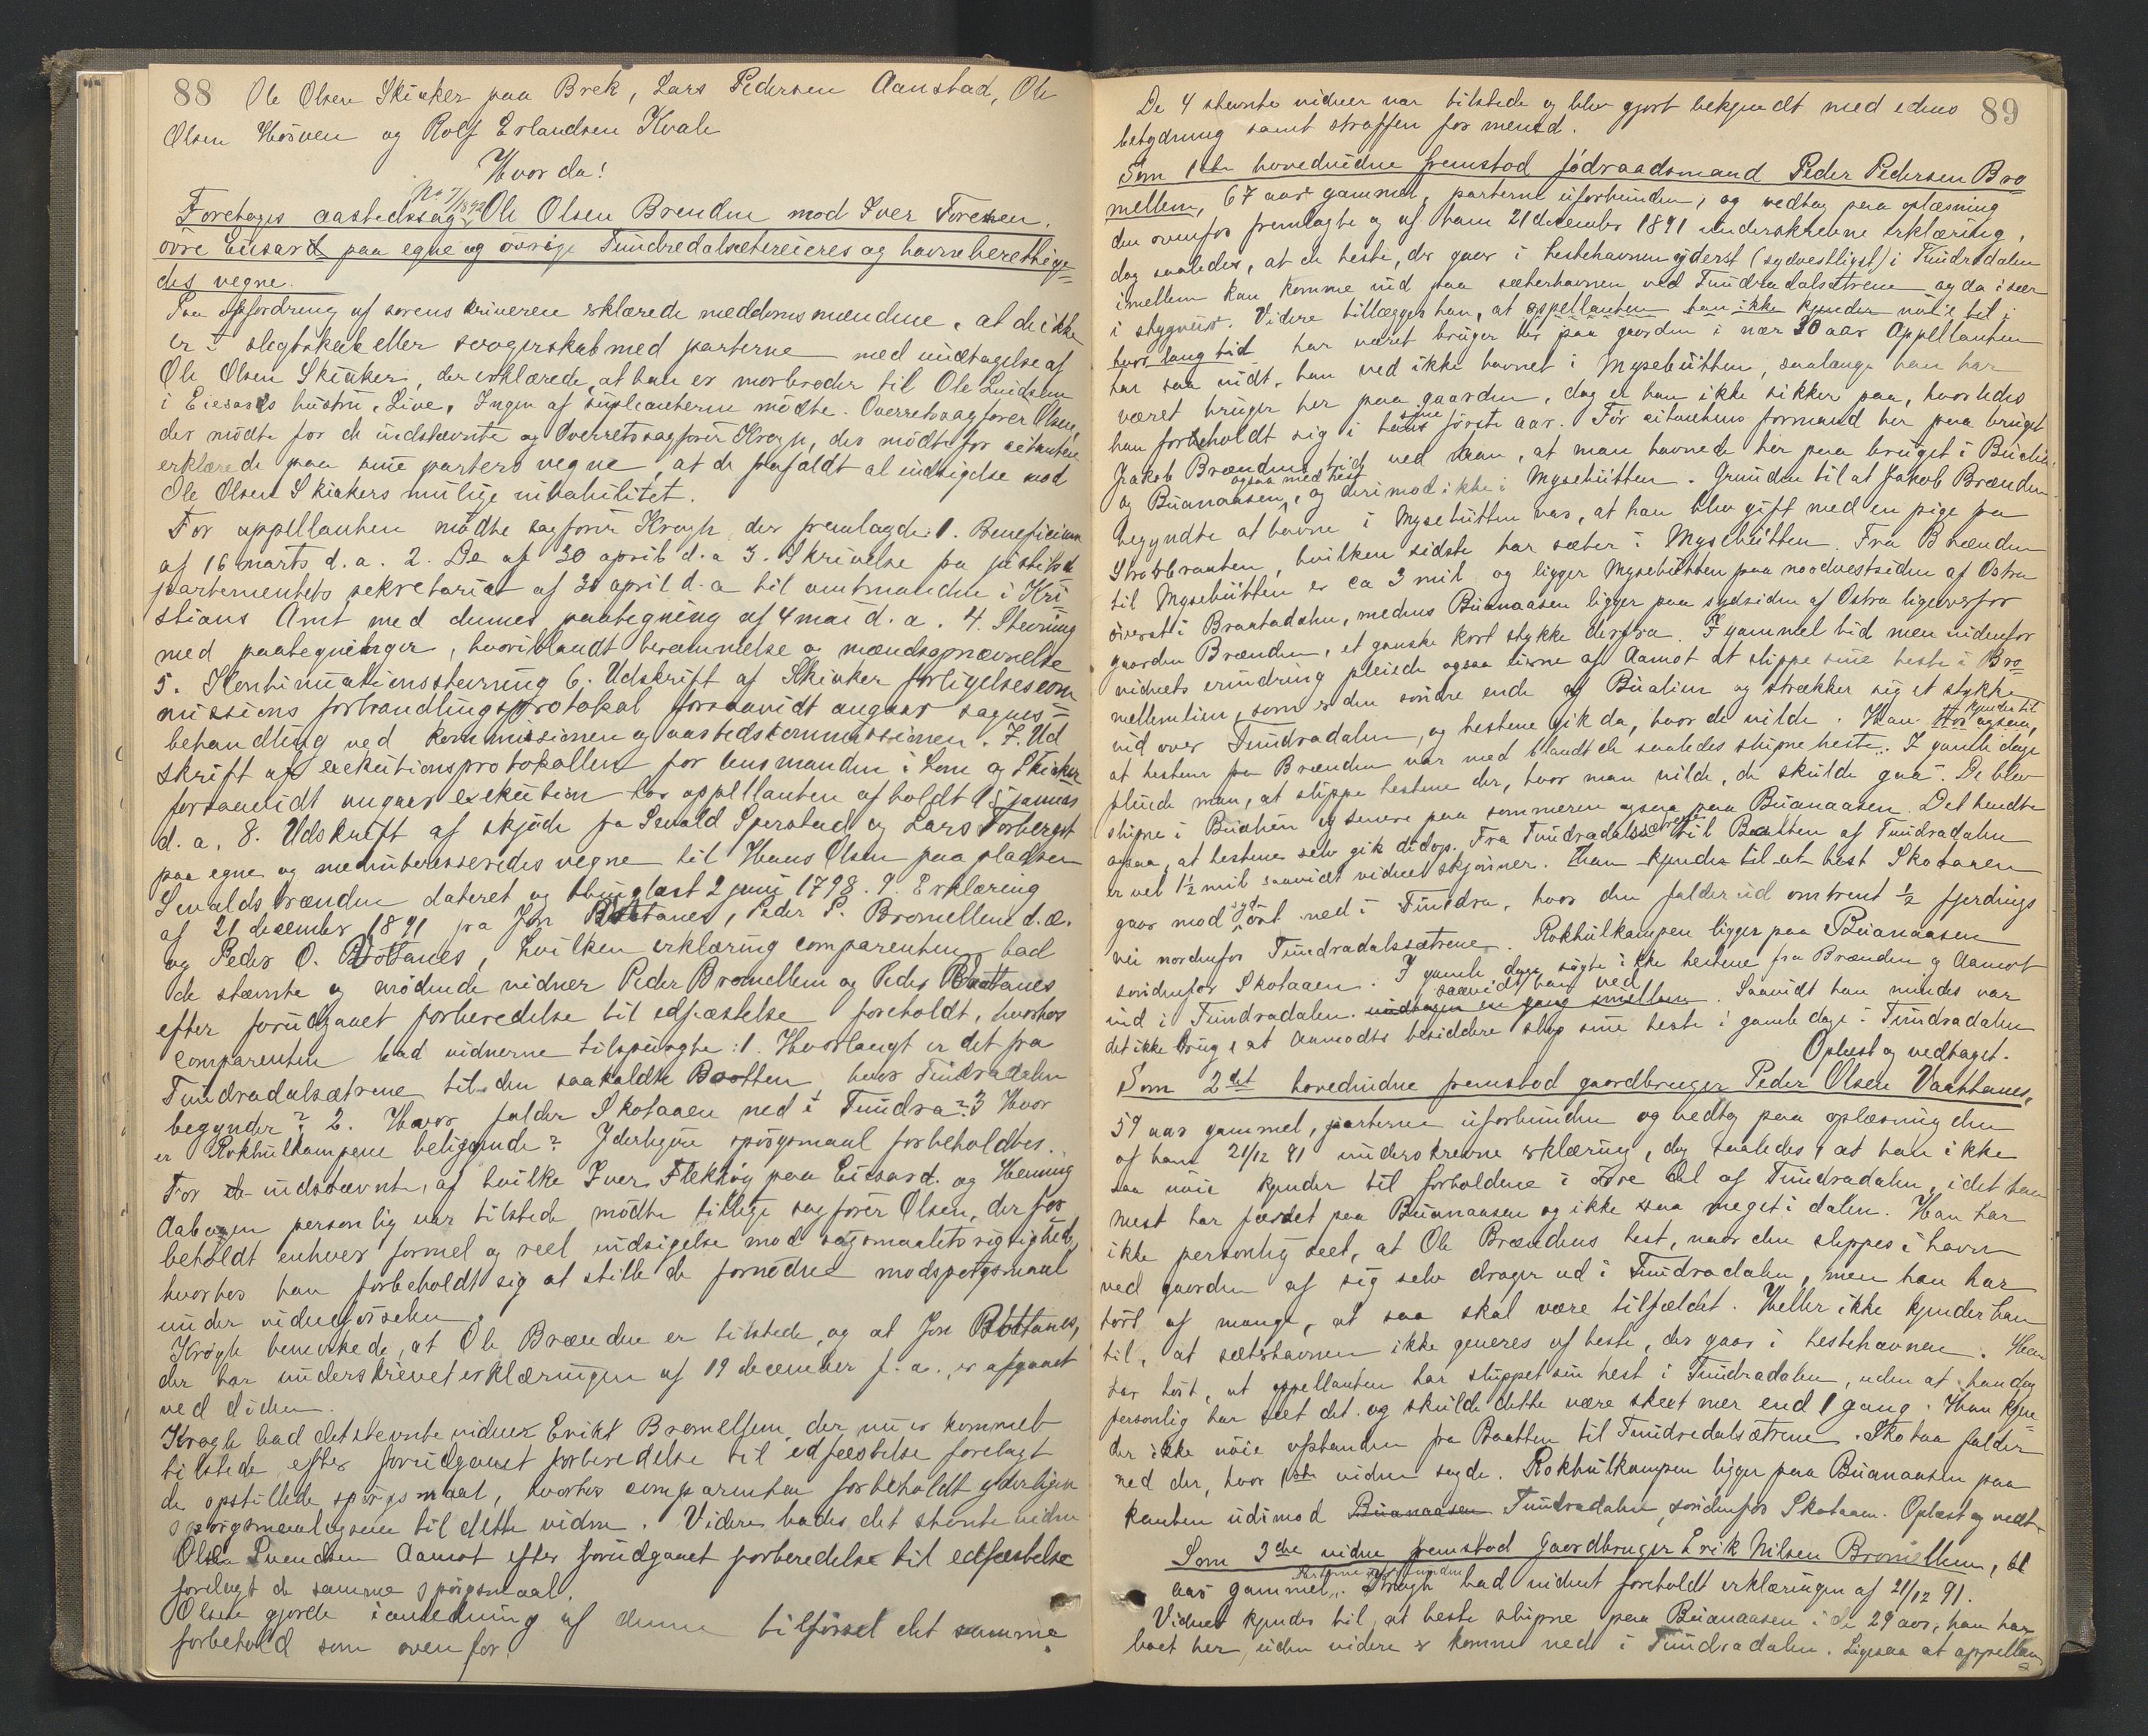 88 Ole Olsen Skiaker paa Brek, Lars Pedersen Aanstad, Ole
Olsen Hösven og Rolf Erlandsen Kvale
Hvor da!
Foretoges aastedssag No 7/1892 Ole Olsen Brenden mod Iver
övre Eiesard paa egne og övrige Tundredalsætereieres og havneberettige=
des vegne.
Paa opfordring af sorenskriveren erklærede meddomsmændene, at de ikke
er i slegtskab eller svogerskab med parterne med undtagelse af
Ole Olsen Skiaker, der erklærede, at han er morbroder til Ole
i Eiesards hustru, Live. Ingen af suplianterne mödte. Overretssagförer Olsen,
der mödte for de indstævnte og Overretssagförer Krogh, der mödte for citanten
erklærede paa sine parters vegne, at de frafaldt al indsigelse mod
Ole Olsen Skiakers mulige inhabilitet.
For appellanten mödte sagförer Krogh der fremlagde: 1. Beneficium
af 16 marts d. a. 2. Do af 30 april d. a 3. Skrivelse fra justitsde
partementets sekretariat af 30 april d. a til amtmanden i Kri
stians Amt med dennes paategning af 4 mai d. a. 4. Stevning
med paategninger, hvoriblandt berammelse og mændsopnævnelse
5. Kontinuationsstevning 6. Udskrift af Skiaker forligelseskom
missions forhandlingsprotokol forsaavidt angaar sagens
behandling ved kommissionen og aastedskommissionen. 7. Ud
skrift af exekutionsprotokollen for lensmanden i Lom og Skiaker
forsaavidt angaar exekution hos appellanten afholdt 15 januar
d. a. 8. Udskrift af skjöde fra Sevald Sperstad og Lars Forberget
paa egne og medinteresseredes vegne til Hans Olsen paa pladsen
Sevaldsbrænden dateret og thinglæst 2 juni 1798. 9. Erklæring
af 21 december 1891 fra Jon Vaattanes, Peder P. Bromellem d. æ.
og Peder O. Vaattanes, hvilken erklæring comparenten bad
de stævnte og mödende vidner Peder Bromellem og Peder Vaattanes
efter forudgaaet forberedelse til edfæstelse foreholdt, hvorhos
comparenten bad vidnerne tilspurgte: 1. Hvorlangt er det fra
Tundradalsætrene til den saakaldte Baatten hvor Tundradalen
begynder? 2. Hvor falder Skotaaen ned i Tundra? 3 Hvor
er Rokhulkampene beliggende? Yderligere spörgsmaal forbeholdtes.
For de indstævnte, af hvilke Iver Flekköy paa Eiesard og Henning
Aaboen personlig var tilstede mödte tillige sagförer Olsen, der for
beholdt enhver formel og reel indsigelse mod sögsmaalets rigtighed,
hvorhos han forbeholdt sig at stille de fornödne modspörgsmaal
under vidneförselen.
Krogh bemerkede, at Ole Brænden er tilstede, og at Jon Vaattanes,
der har underskrevet erklæringen af 19 december f. a., er afgaaet
ved döden.
Krogh bad det stevnte vidne Erik Bromellem, der nu er kommet
tilstede efter forudgaaet forberedelse til edfæstelse forelagt
de opstillede spörgsmaal, hvorhos comparenten forbeholdt yderligere
spörgsmaal ogsaa til dette vidne. Videre bades det stevnte vidne
Svendsen Aamot efter forudgaaet forberedelse til edfæstelse
forelagt de samme spörgsmaal.
Olsen gjorde i anledning af denne tilförsel det samme
forbehold som ovenfor.
De 4 stevnte vidner var tilstede og blev gjort bekjendt med edens 89
betydning samt straffen for mened.
Som 1ste hovedvidne fremstod födraadsmand Peder Pedersen Bro
mellem, 67 aar gammel, parterne uforbunden, og vedtog paa oplæsning
den ovenfor fremlagte og af ham 21 december 1891 underskrevne erklæring,
dog saaledes, at de heste, der gaar i hestehavnen yderst (sydvestligst) i Tundradalen
imellem kan komme ind paa sæterhavnen ved Tundradalsætrene og da især
i stygveir. Videre tillægges han, at appellanten han ikke kjender nöie til i
hvor lang tid har været bruger her paa gaarden i nær 30 aar Appellanten
har saa vidt han ved ikke havnet i Mysebütten, saalænge han har
været bruger her paa gaarden, dog er han ikke sikker paa, hvorledes
han forheholdt sig i sine förste aar. För citantens formand her paa bruget
Jakob Brændens tid ved han, at man havnede her paa bruget i Bualien
og Buanaasen ogsaa med hest, og derimod ikke i Mysebütten. Grunden til at Jakob Brænden
begyndte at havne i Mysebütten var, at han blev gift med en pige fra
hvilken sidste har sæter i Mysebütten. Fra Brænden
til Mysebütten er ca 3 mil og ligger Mysebütten paa nordvestsiden af Ostra
överst i Braatadalen, medens Buanaasen ligger paa sydsiden af Ostra ligeoverfor
gaarden Brænden, et ganske kort stykke derfra. I gammel tid men udenfor
vidnets erindring pleiede ogsaa eierne af Aamot at slippe sine heste i Bro
mellemlien, som er den söndre ende af Bualien og strækker sig et stykke
ind over Tundradalen, og hestene gik da, hvor de vilde. Han kjender til
at hestene fra Brænden var med blandt de saaledes slupne heste. I gamle dage
pleiede man, at slippe hestene der, hvor man vilde, de skulde gaa. De blev
slupne i Bualien og senere paa sommeren ogsaa paa Buanaasen. Det hendte
ogsaa, at hestene selv gik didop. Fra Tundradalssætrene til Baatten af Tundradalen
er vel 1½ mil saavidt vidnet skjönner. Han kjender til at hest Skotaaen
gaar mod syd öst ned i Tundra, hvor den falder ud omtrent ½ fjerdings
vei nordenfor Tundradalssætrene. Rokhulkampen ligger paa Buanaasen
söndenfor Skotaaen. I gamle dage sögte ikke hestene fra Brænden og Aamot
ind i Tundradalen saavidt han ved undtagen en gang imellem. Saavidt han mindes var
det ikke brug, at Aamodts besiddere slap sine heste i gamle dage i Tundradalen
Oplæst og vedtaget.
Som 2det hovedvidne fremstod gaardbruger Peder Olsen Vaattanes,
59 aar gammel, parterne uforbunden og vedtog paa oplæsning den
af ham 21/12 91 underskrevne erklæring, dog saaledes, at han ikke
saa nöie kjender til forholdene i övre del af Tundradalen, idet han
mest har færdet paa Buanaasen og ikke saa meget i dalen. Han har
ikke personlig seet, at Ole Brændens hest, naar den slippes i havn
ved gaarden af sig selv drager ud i Tundradalen, men han har
hört af mange, at saa skal være tilfældet. Heller ikke kjender han
til, at sæterhavnen ikke generes af heste, der gaar i hestehavnen. Han
har hört, at appellanten har sluppet sin hest i Tundradalen, uden at han dog
personlig har seet det. og skulde dette være skeet mer end 1 gang. Han kjen=
der ikke nöie afstanden fra Baatten til Tundredalsætrene. Skotaa falder
ned der, hvor 1ste vidne sagde. Rokhulkampen ligger paa Buanaasen paa
kanten udimod Buanaasen Tundradalen, söndenfor Skotaaen. Oplæst og vedt.
Som 3die vidne fremstod Gaardbruger Erik Nilsen Bromellem,
aar gammel, Parterne uforbunden. Krogh bad vidnet foreholdt erklæringen af 21/12 91.
Vidnet kjender til, at heste slupne paa Buanaasen i de 29 aar, han har
boet her, uden videre er komne ned i Tundradalen. Ligesaa at appellan